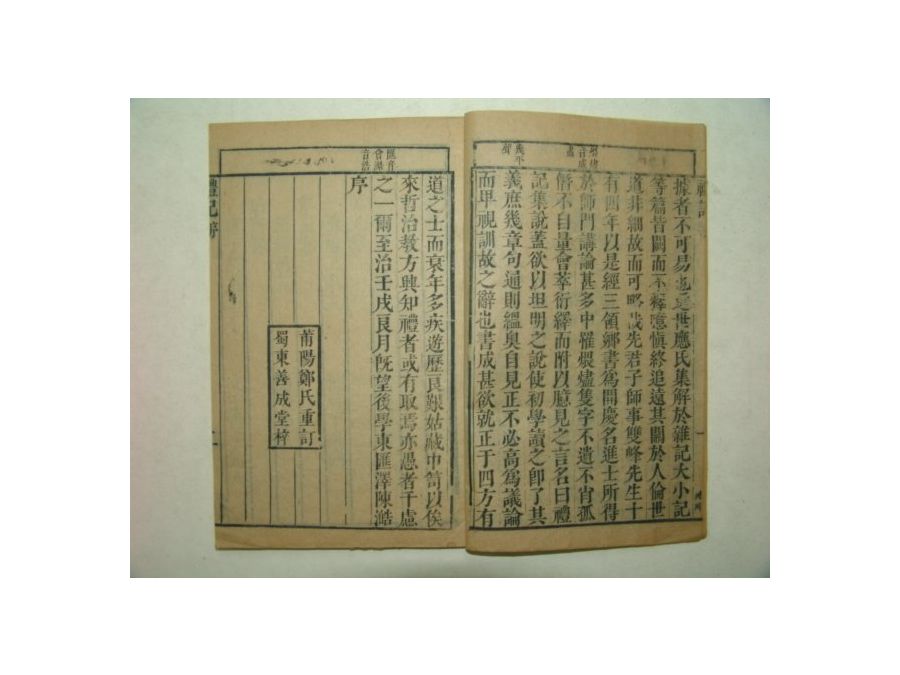 據者不可易也近世應氏集解於雜記大小記
等篇皆闕而不釋噫慎終追遠其關於人倫世
道非細故而可略哉先君子師事雙峰先生十
有四年以是經三領鄉書為開慶名進士所得
於師門講論甚多中罹煨燼隻字不遺不肖孤
僭不自量會萃衍繹而附以臆見之言名曰禮
記集說蓋欲以坦明之說使初學讀之即了其
義庶幾章句通則縕奧自見正不必高為議論
而卑視訓故之辭也書成甚欲就正于四方有
道之士而衰年多疾遊歷良艱姑藏巾笥以俟
來哲治教方興知禮者或有取焉亦愚者千慮
之一爾至治壬戌良月既望後學東匯澤陳澔
序
莆陽鄭氏重訂
蜀東善成堂梓
禮記